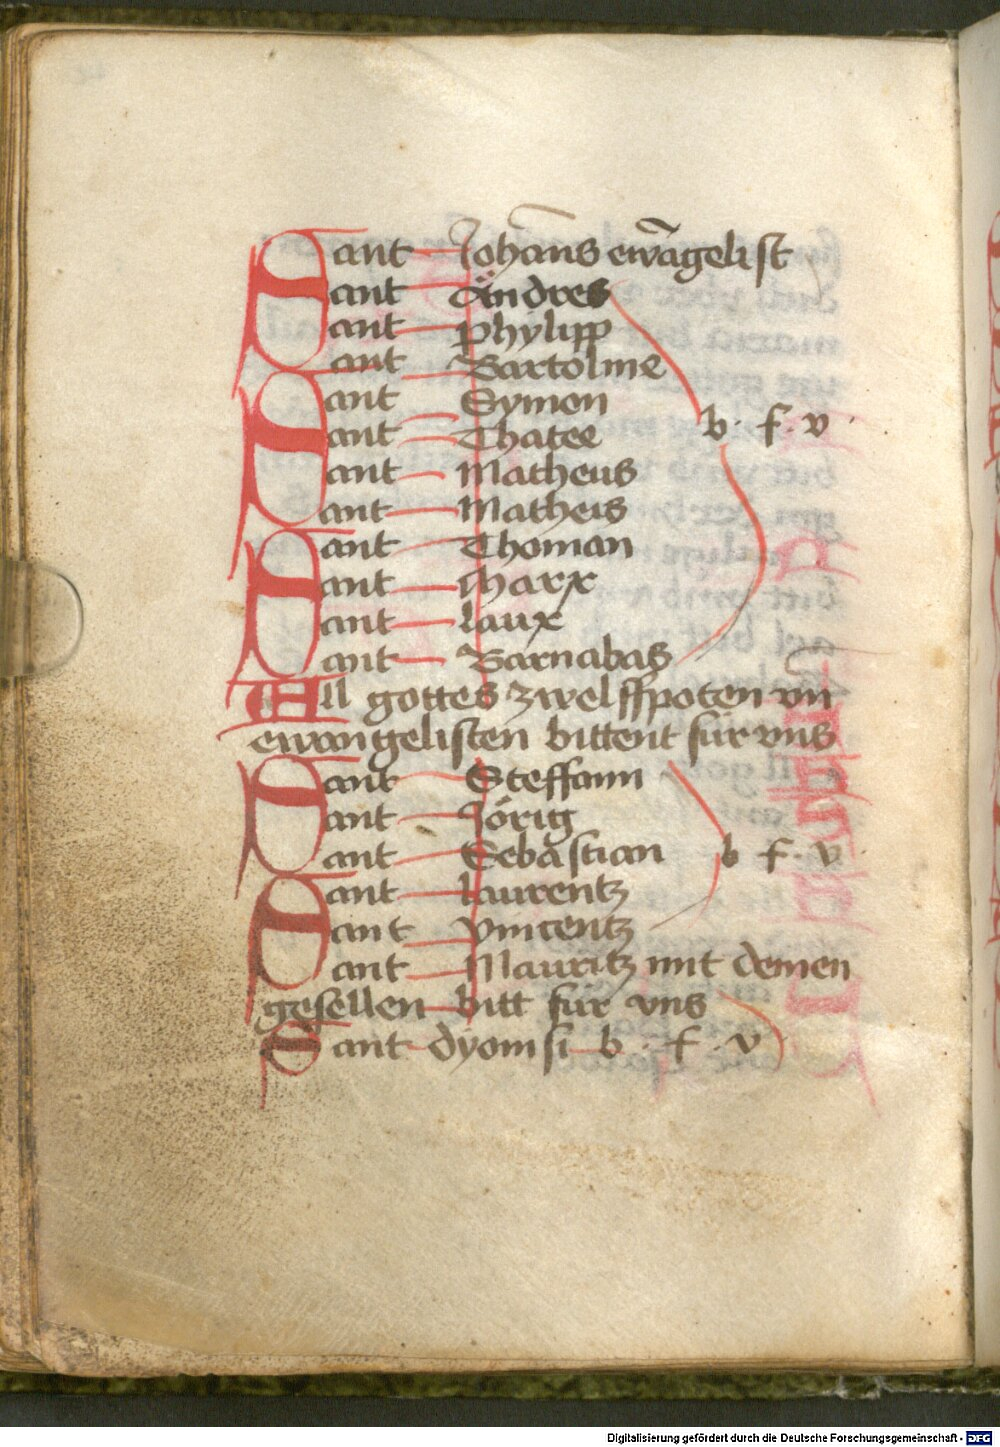 Sant Johans ewãgelist
Sant Ändres
Sant Phylipp
Sant Bartolme
Sant Symon
Sant Thatee b. f. v.
Sant Matheus
Sant Matheis
Sant Thoman
Sant Marx
Sant laux
Sant Barnabas
All gottes zwelffpoten vn
ewangelisten bittent für vns
Sant Steffann
Sant Jörig
Sant Sebastian b f. v.
Sant laurentz
Sant vincentz
Sant Mauritz mit deinen
gesellen bitt für vns
Sant dyonisi b. f. v
Digitalisierung gefördert durch die Deutsche Forschungsgemeinschaft - DFG